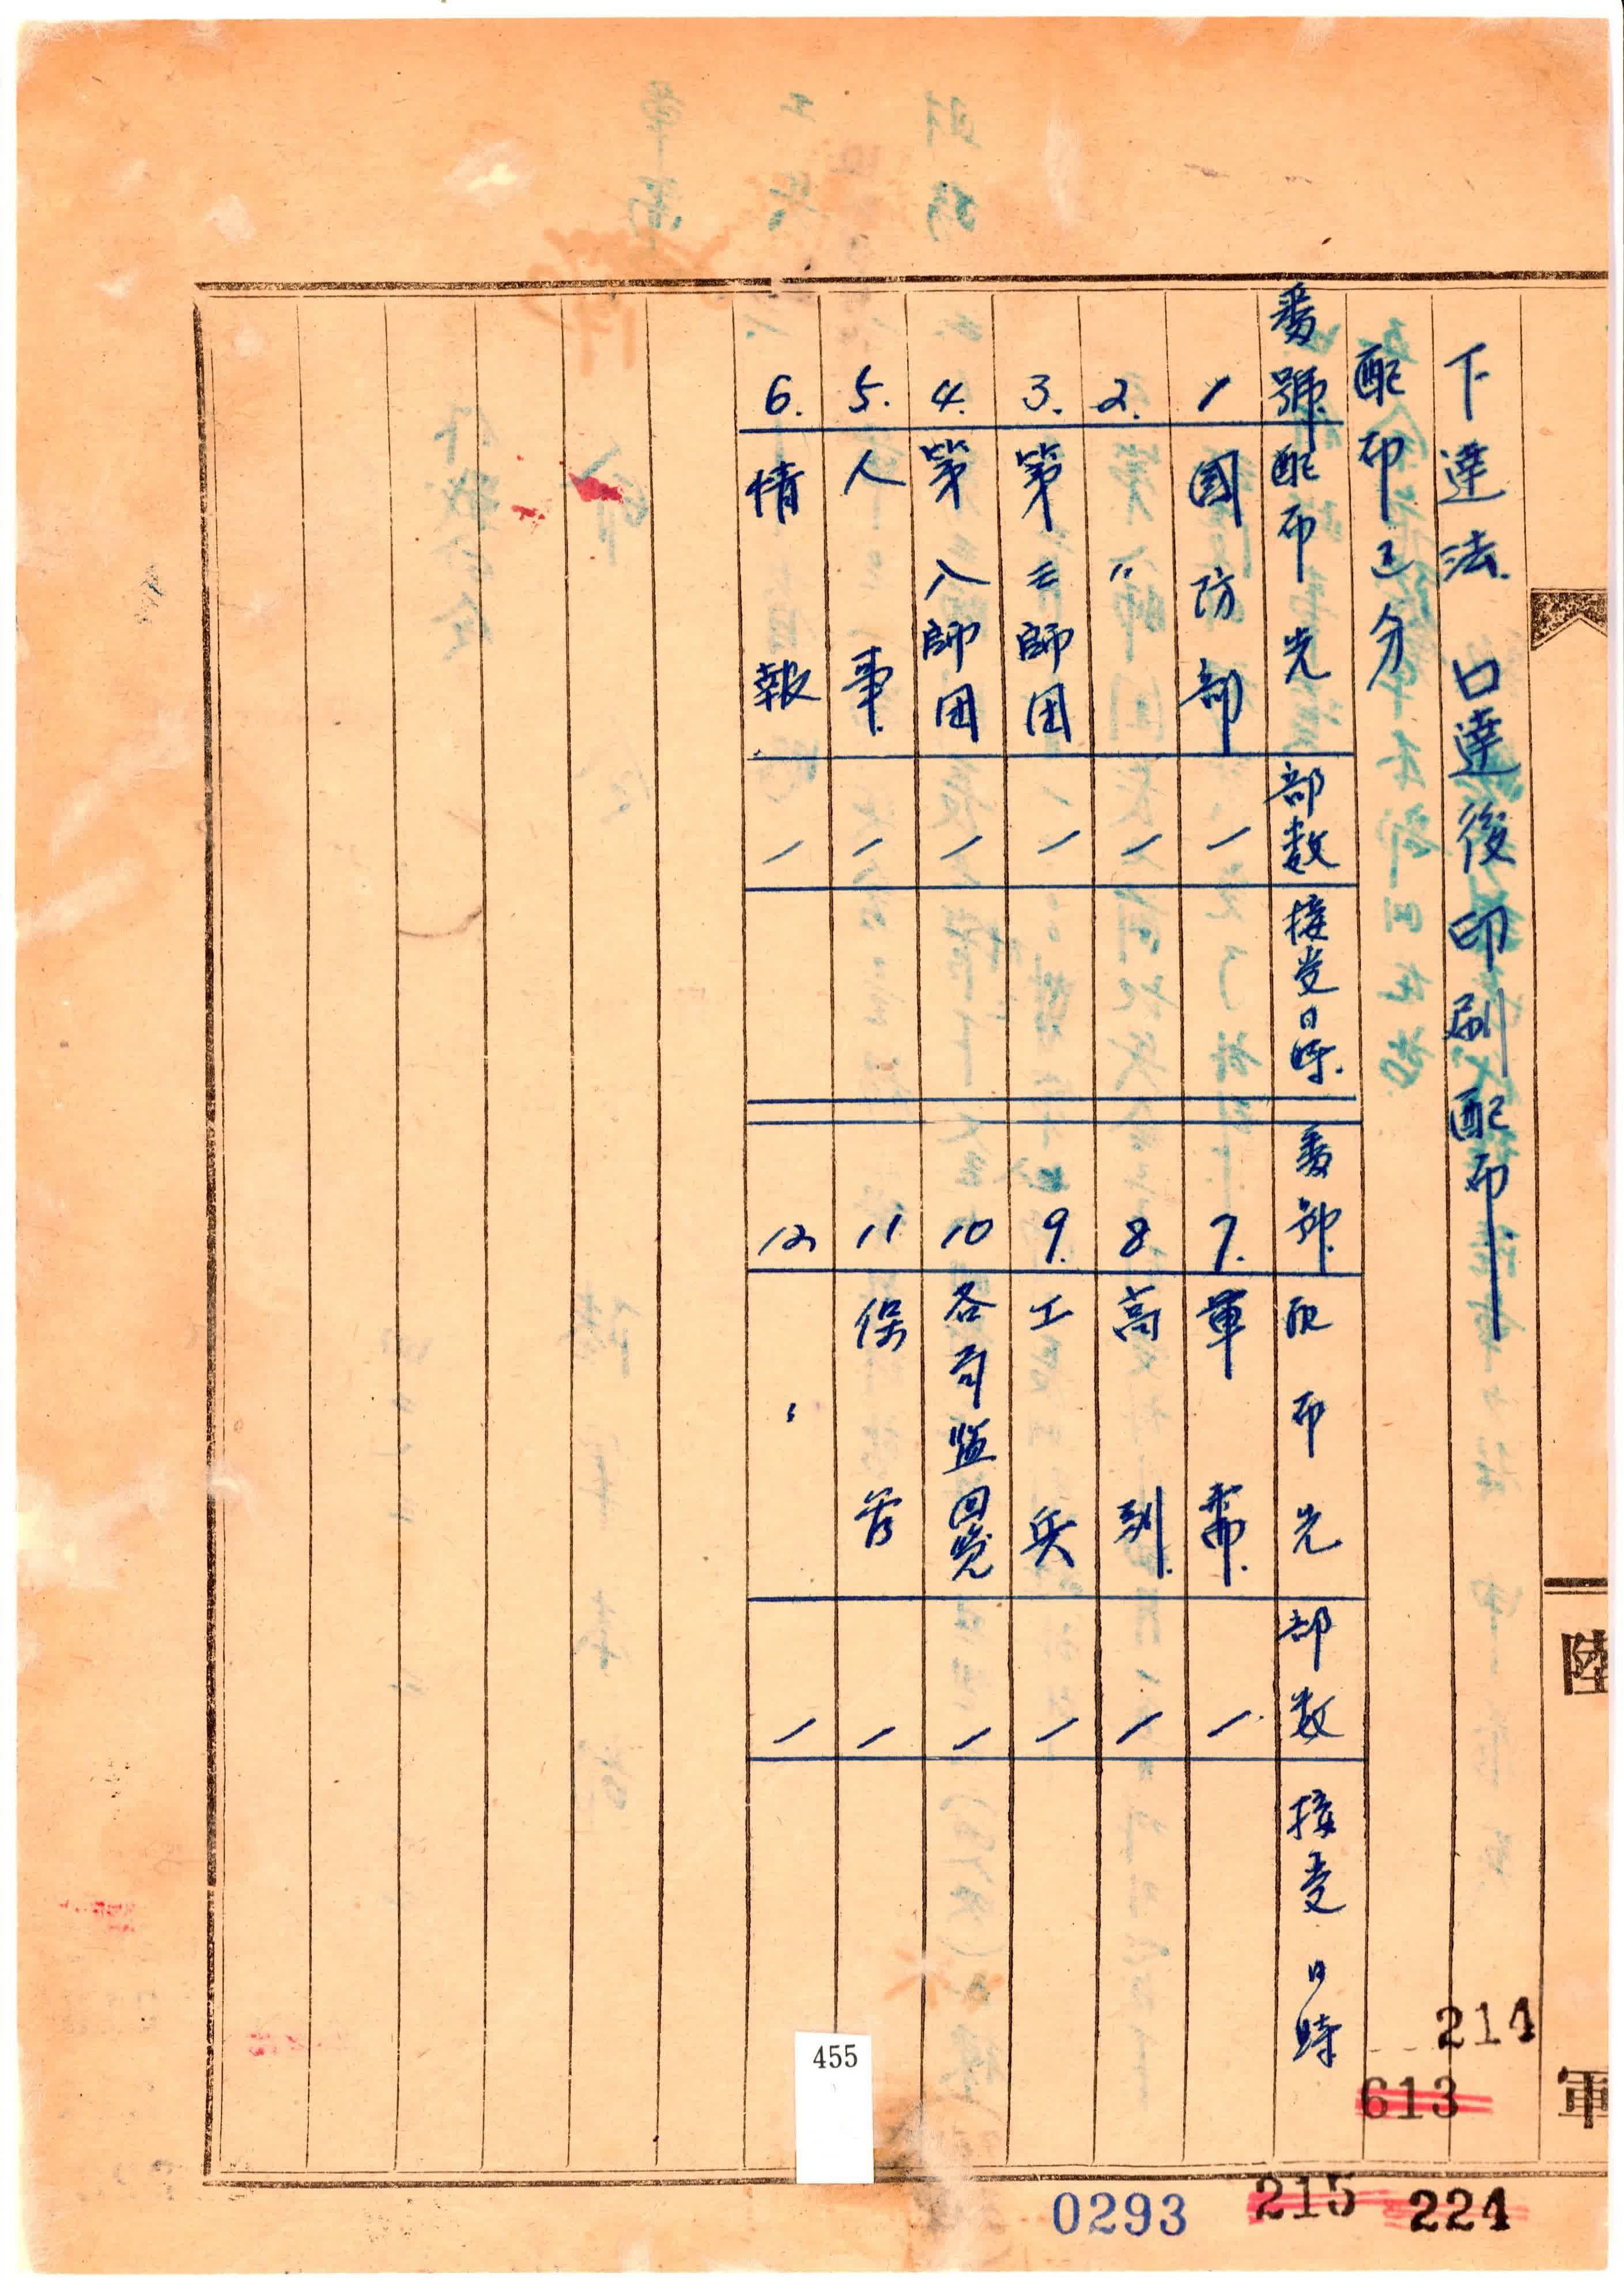 下達法 口達後印刷配布
配布区分
番號 配布先 部数 接受日時 番號 配布先 部数 接受日時
1 國防部 1 7. 軍幕 1
2. 〃 1 8 高射 1
3. 第七師団 1 9. 工兵 1
4. 第八師団 1 10 各司監回覧 1
5. 人事 1 11 保管 1
6. 情報 1 12 〃 1
陸
軍
214
613
455
0293 215 224